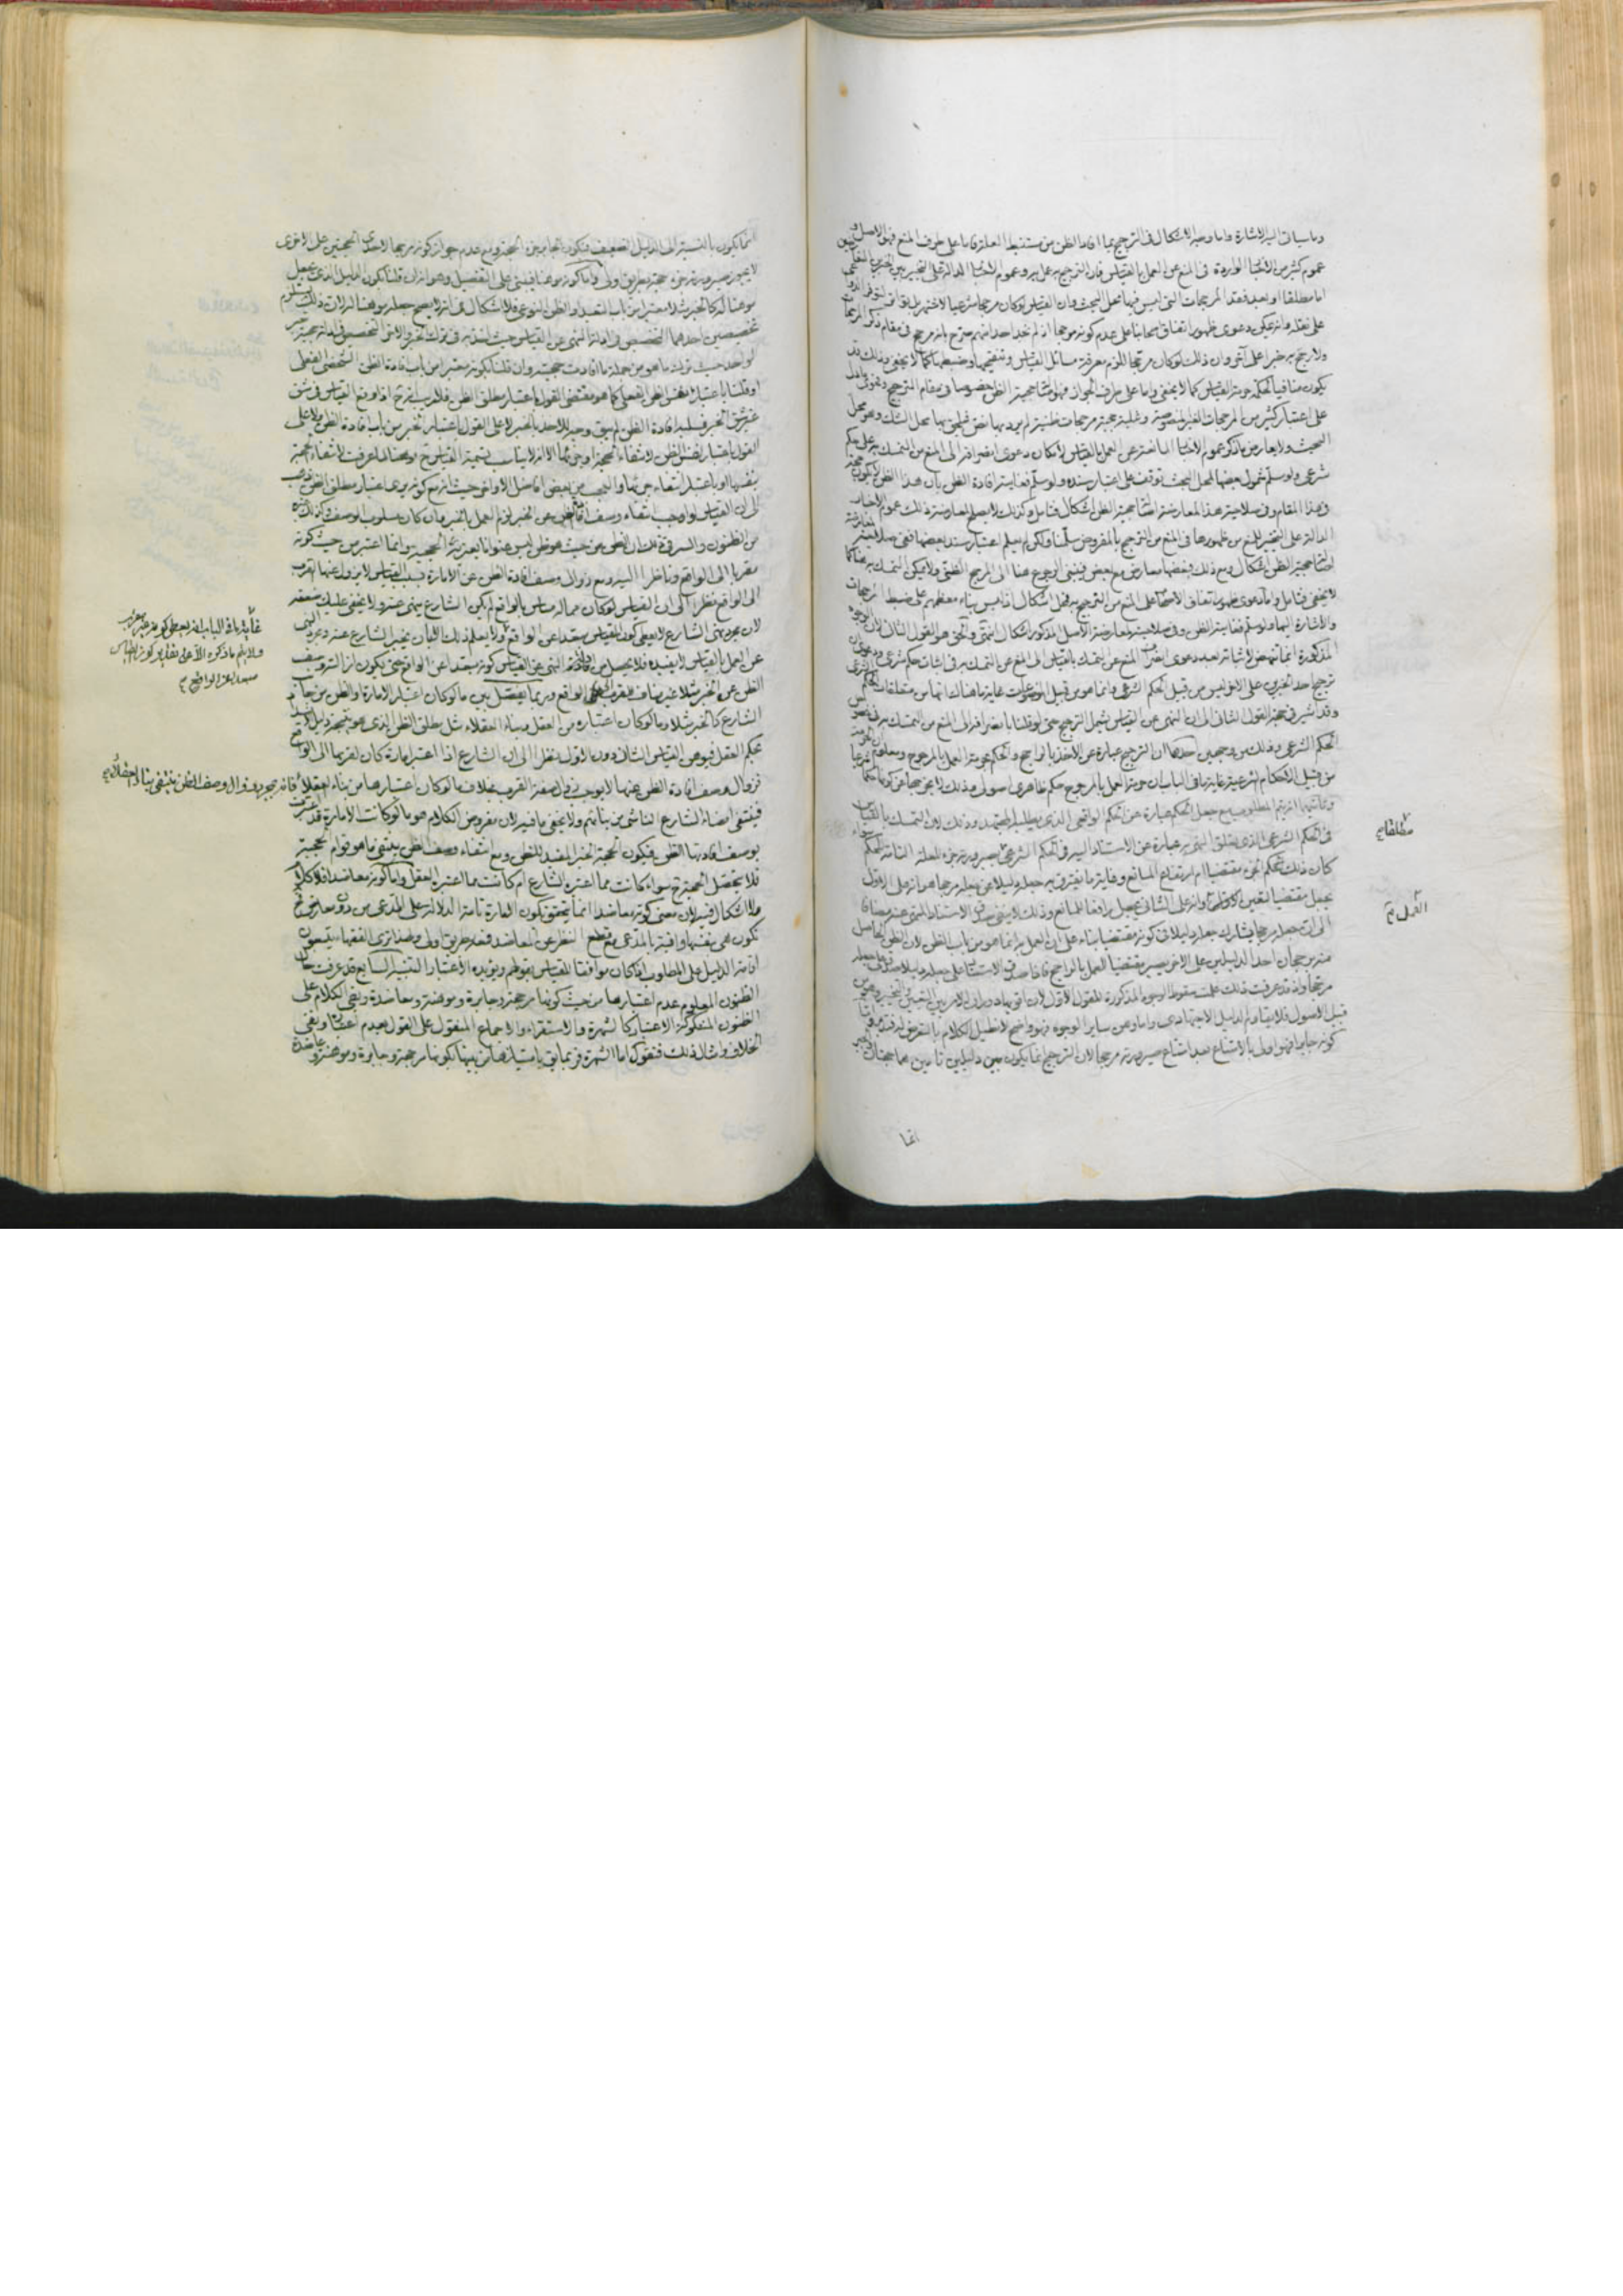 وما سيأتى اليه الاشارة واما وجه الاشكال فى الترجيح بما افاد الظن من مستنبط العلة فاما على طرف المنع فهو الاصل و
عموم كثير من الاخبار الواردة فى المنع عن العمل بالقياس فان الترجيح به عمل به وعموم الاخبار الدالة على التخيير بين الخبرين
اما مطلقا او بعد فقد المرجحات التى ليس فيها محل البحث وان القياس لوكان مرجحا شرعيا لاشتهر بل تواتر لتوفر الدواعى
على نقله وانه يمكن دعوى ظهور اتفاق اصحابنا على عدم كونه مرجحا اذ لم نجد احدا منهم صرح بانه مرجح فى مقام ذكر المرجحات
ولا رجح به خبرا على آخر وان ذلك لوكان مرجحا للزم معرفة مسائل القياس وتنقيحها وضبطها كما لا يخفى وذلك قد
يكون منافيا لحكمة حرمة القياس كما لا يخفى واما على طرف الجواز فهو اصالة حجية الظن خصوصا فى مقام الترجيح
على اعتبار كثير من المرجحات الغير المنصوصة وغلبة حجية مرجحات ظنية لم يرد بها نص فيلحق بها محل الشك وهو محل
البحث ولا يعارض ما ذكر عموم الاخبار المانعة عن العمل بالقياس لامكان دعوى انصرافه الى المنع من التمسك به على حكم
شرعى ولو سلم شمول بعضها لمحل البحث توقف على اعتبار سنده ولو سلم فغايته افادة الظن بان هذا الظن لا يكون حجة
فى هذا المقام وفى صلاحية هذا المعارضة اصالة حجية الظن اشكال فتامل وكذلك لا يصلح لمعارضة ذلك عموم الاخبار
الدالة على التخيير للمنع من ظهورها فى المنع من الترجيح بالمفروض سلمنا ولكن لم يعلم اعتبار سند بعضها ففى صلاحيته
اصالة حجية الظن اشكال ومع ذلك فبعضها معارض مع بعض فينبغى الرجوع هنا الى المرجح الظنى ولا يمكن التمسك به هنا كما
لا يخفى فتامل واما دعوى ظهور اتفاق الاصحاب على المنع من الترجيح به فمحل اشكال اذ ليس بناء معظمهم على ضبط المرجحات
والاشارة اليها ولو سلم فغايته الظن وفى صلاحيته لمعارضة الاصل المذكور اشكال انتهى والحق هو القول الثانى لان الوجوه
المذكورة انما تنهض لاثباته بعد دعوى انصراف المنع عن التمسك بالقياس الى المنع عن التمسك به فى اثبات حكم شرعى ودعوى ان
ترجيح احد الخبرين على الاخر ليس من قبيل الحكم الشرعى وانما هو من قبيل الموضوعات غاية ما هناك انها من متعلقات الحكم الشرعى
وقد اشير فى حجية القول الثانى الى ان النهى عن القياس يشمل الترجيح حتى لو قلنا بانصرافه الى المنع من التمسك به فى نفس
الحكم الشرعى وذلك من وجهين احدهما ان الترجيح عبارة عن الاخذ بالراجح والحكم بحرمة العمل بالمرجوح ومعلوم ان الحرمة
من قبيل الاحكام الشرعية غاية ما فى الباب ان حرمة العمل بالمرجوح حكم ظاهرى اصولى وذلك لا يخرجها عن كونها حكما شرعيا
وثانيهما انه يتم المطلوب مع جعل الحكم عبارة عن الحكم الواقعى الذى يطلبه المجتهد وذلك لان التمسك بالقياس
فى الحكم الشرعى الذى يتعلق النهى به عبارة عن الاستناد اليه فى الحكم الشرعى بصيرورته جزء للعلة التامة للحكم
كان ذلك الحكم الجزء مقتضيا ام ارتفاع المانع وغاية ما يفترق به جعله دليلا عن جعله مرجحا هو انه على الاول
يجعل مقتضيا لنفس الحكم وانه على الثانى يجعل رافعا للمانع وذلك لا ينفى صدق الاستناد المنهى عنه مضافا
الى ان جعله مرجحا يشارك جعله دليلا فى كونه مقتضيا بناء على ان العمل به انما هو من باب الظن لان الظن الحاصل
منه برجحان احد الدليلين على الاخر يصير مقتضيا للعمل بالراجح فاذا صدق الاستناد على جعله دليلا صدق على جعله
مرجحا واذ قد عرفت ذلك علمت سقوط الوجوه المذكورة للقول الاول لان اقويها دوران الامر بين التعيين والتخيير وهو من
قبيل الاصول فلا يقاوم الدليل الاجتهادى واما وهن ساير الوجوه فهو واضح لا نطيل الكلام بالتعرض لدفعه واما
كونه جابرا فهو اولى بالامتناع بعد امتناع صيرورته مرجحا لان الترجيح انما يكون بين دليلين تامين هما حجتان والجبر
مطلقا صح
الدليل صح
انما
انما يكون بالنسبة الى الدليل الضعيف فيكون الجابر جزء الحجة ومع عدم جواز كونه مرجحا لاحدى الحجتين على الاخرى
لا يجوز صيرورته جزء حجة بطريق اولى واما كونه موهنا فيبنى على التفصيل وهو انه ان قلنا بكون الدليل الذى يجعل
موهنا له كالخبر مثلا معتبرا من باب التعبد او الظن النوعى فلا اشكال فى انه لا يصح جعله موهنا له لان ذلك يستلزم
تخصيصين احدهما التخصيص فى ادلة النهى عن القياس حيث استند اليه فى ترك الخبر والاخر التخصيص فى ادلة حجية خبر
الواحد حيث ترك ما هو من جملة ما افادت حجيته وان قلنا بكونه معتبرا من باب افادة الظن الشخصى الفعلى
او قلنا باعتبار نفس الظن الفعلى كما هو مقتضى القول باعتبار مطلق الظن فلا ريب انه ح اذا وقع القياس فى شق
غير شق الخبر فسلبه افادة الظن لم يبق وجه للاخذ بالخبر لا على القول باعتبار الخبر من باب افادة الظن ولا على
القول باعتبار نفس الظن لانتفاء الحجية او جزئها الا انه لا يناسب تسمية القياس ح موهنا لما عرفت لانتفاء الحجية
بنفسها او باعتبار انتفاء جزئها والعجب من بعض افاضل الاواخر حيث انه مع كونه يرى اعتبار مطلق الظن ذهب
الى ان القياس لو اوجب انتفاء وصف افادة الظن عن الخبر لزم العمل بالخبر وان كان مسلوب الوصف وكذلك غيره
من الظنون والسر فى ذلك ان الظن من حيث هو ظن ليس عنوانا يعتريه الحجية وانما اعتبر من حيث كونه
مقربا الى الواقع وناظرا اليه ومع زوال وصف افادة الظن عن الامارة بسبب القياس لا يزول عنها القرب
الى الواقع نظرا الى ان القياس لوكان مما له مساس بالواقع لم يكن الشارع ينهى عنه ولا يخفى عليك ضعفه
لان مجرد نهى الشارع لا يعطى كون القياس مبعدا عن الواقع ولا يعلم ذلك الا بان يخبر الشارع عنه ودعوى النهى
عن العمل بالقياس لا يفيده فلا يحصل من افادة النهى عن القياس كونه مبعدا عن الواقع حتى يكون ازالته وصف
الظن عن الخبر مثلا غير مناف لقربه الى الواقع وربما يفصل بين ما لوكان اعتبار الامارة والظن من جانب
الشارع كالخبر مثلا وما لوكان اعتباره من العقل وبناء العقلاء مثل مطلق الظن الذى هو نتيجة دليل الانسداد
بحكم العقل فيوهن القياس الثانى دون الاول نظرا الى ان الشارع اذا اعتبر امارة كان لقربها الى الواقع
فزوال وصف افادة الظن عنها لا يوجب زوال صفة القرب بخلاف ما لوكان اعتبارها من بناء العقلاء فانه بمجرد زوال وصف الظن ينتفى بناء العقلاء صح
فينتفى امضاء الشارع الناشى من بنائهم ولا يخفى ما فيه لان مفروض الكلام هو ما لو كانت الامارة قد اعتبرت
بوصف افادتها الظن فيكون الحجة الخبر المفيد للظن ومع انتفاء وصف الظن ينتفى ما هو قوام الحجية
فلا يتحصل الحجية ح سواء كانت مما اعتبره الشارع ام كانت مما اعتبره العقل واما كونه معاضدا فلا كلام
ولا اشكال فيه لان معنى كونه معاضدا انما يتحقق بكون الامارة تامة الدلالة على المدعى من دون معارض ح
تكون هى بنفسها وافية بالمدعى مع قطع النظر عن المعاضد فمعه بطريق اولى وهذا ترى الفقهاء يتبعون
اقامة الدليل على المطلوب اذا كان موافقا للقياس بقولهم ويؤيده الاعتبار التنبيه السابع قد عرفت حال
الظنون المعلوم عدم اعتبارها من حيث كونها مرجحة وجابرة وموهنة ومعاضدة وبقى الكلام على
الظنون المشكوكة الاعتبار كالشهرة والاستقراء والاجماع المنقول على القول بعدم اعتباره ونفى
الخلاف وامثال ذلك فنقول اما الشهرة فربما يق بامتيازها من بينها بكونها مرجحة وجابرة وموهنة ومعاضدة
غاية ما فى الباب انه يعطى كونه غير مقرب
ولا يتم ما ذكره الا على تقدير كون القياس
مبعدا عن الواقع م